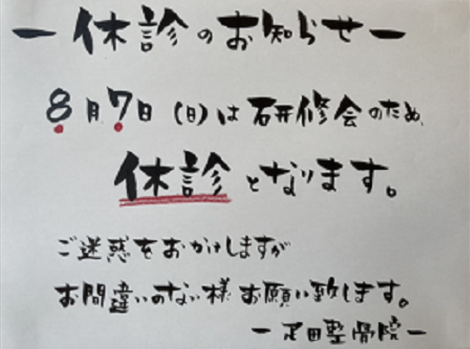 ー休診のお知らせー
8月7日(日)は研修会のため、
休診となります。
ご迷惑をおかけしますが
お間違いのない様お願い致します。
ー疋田整骨院ー